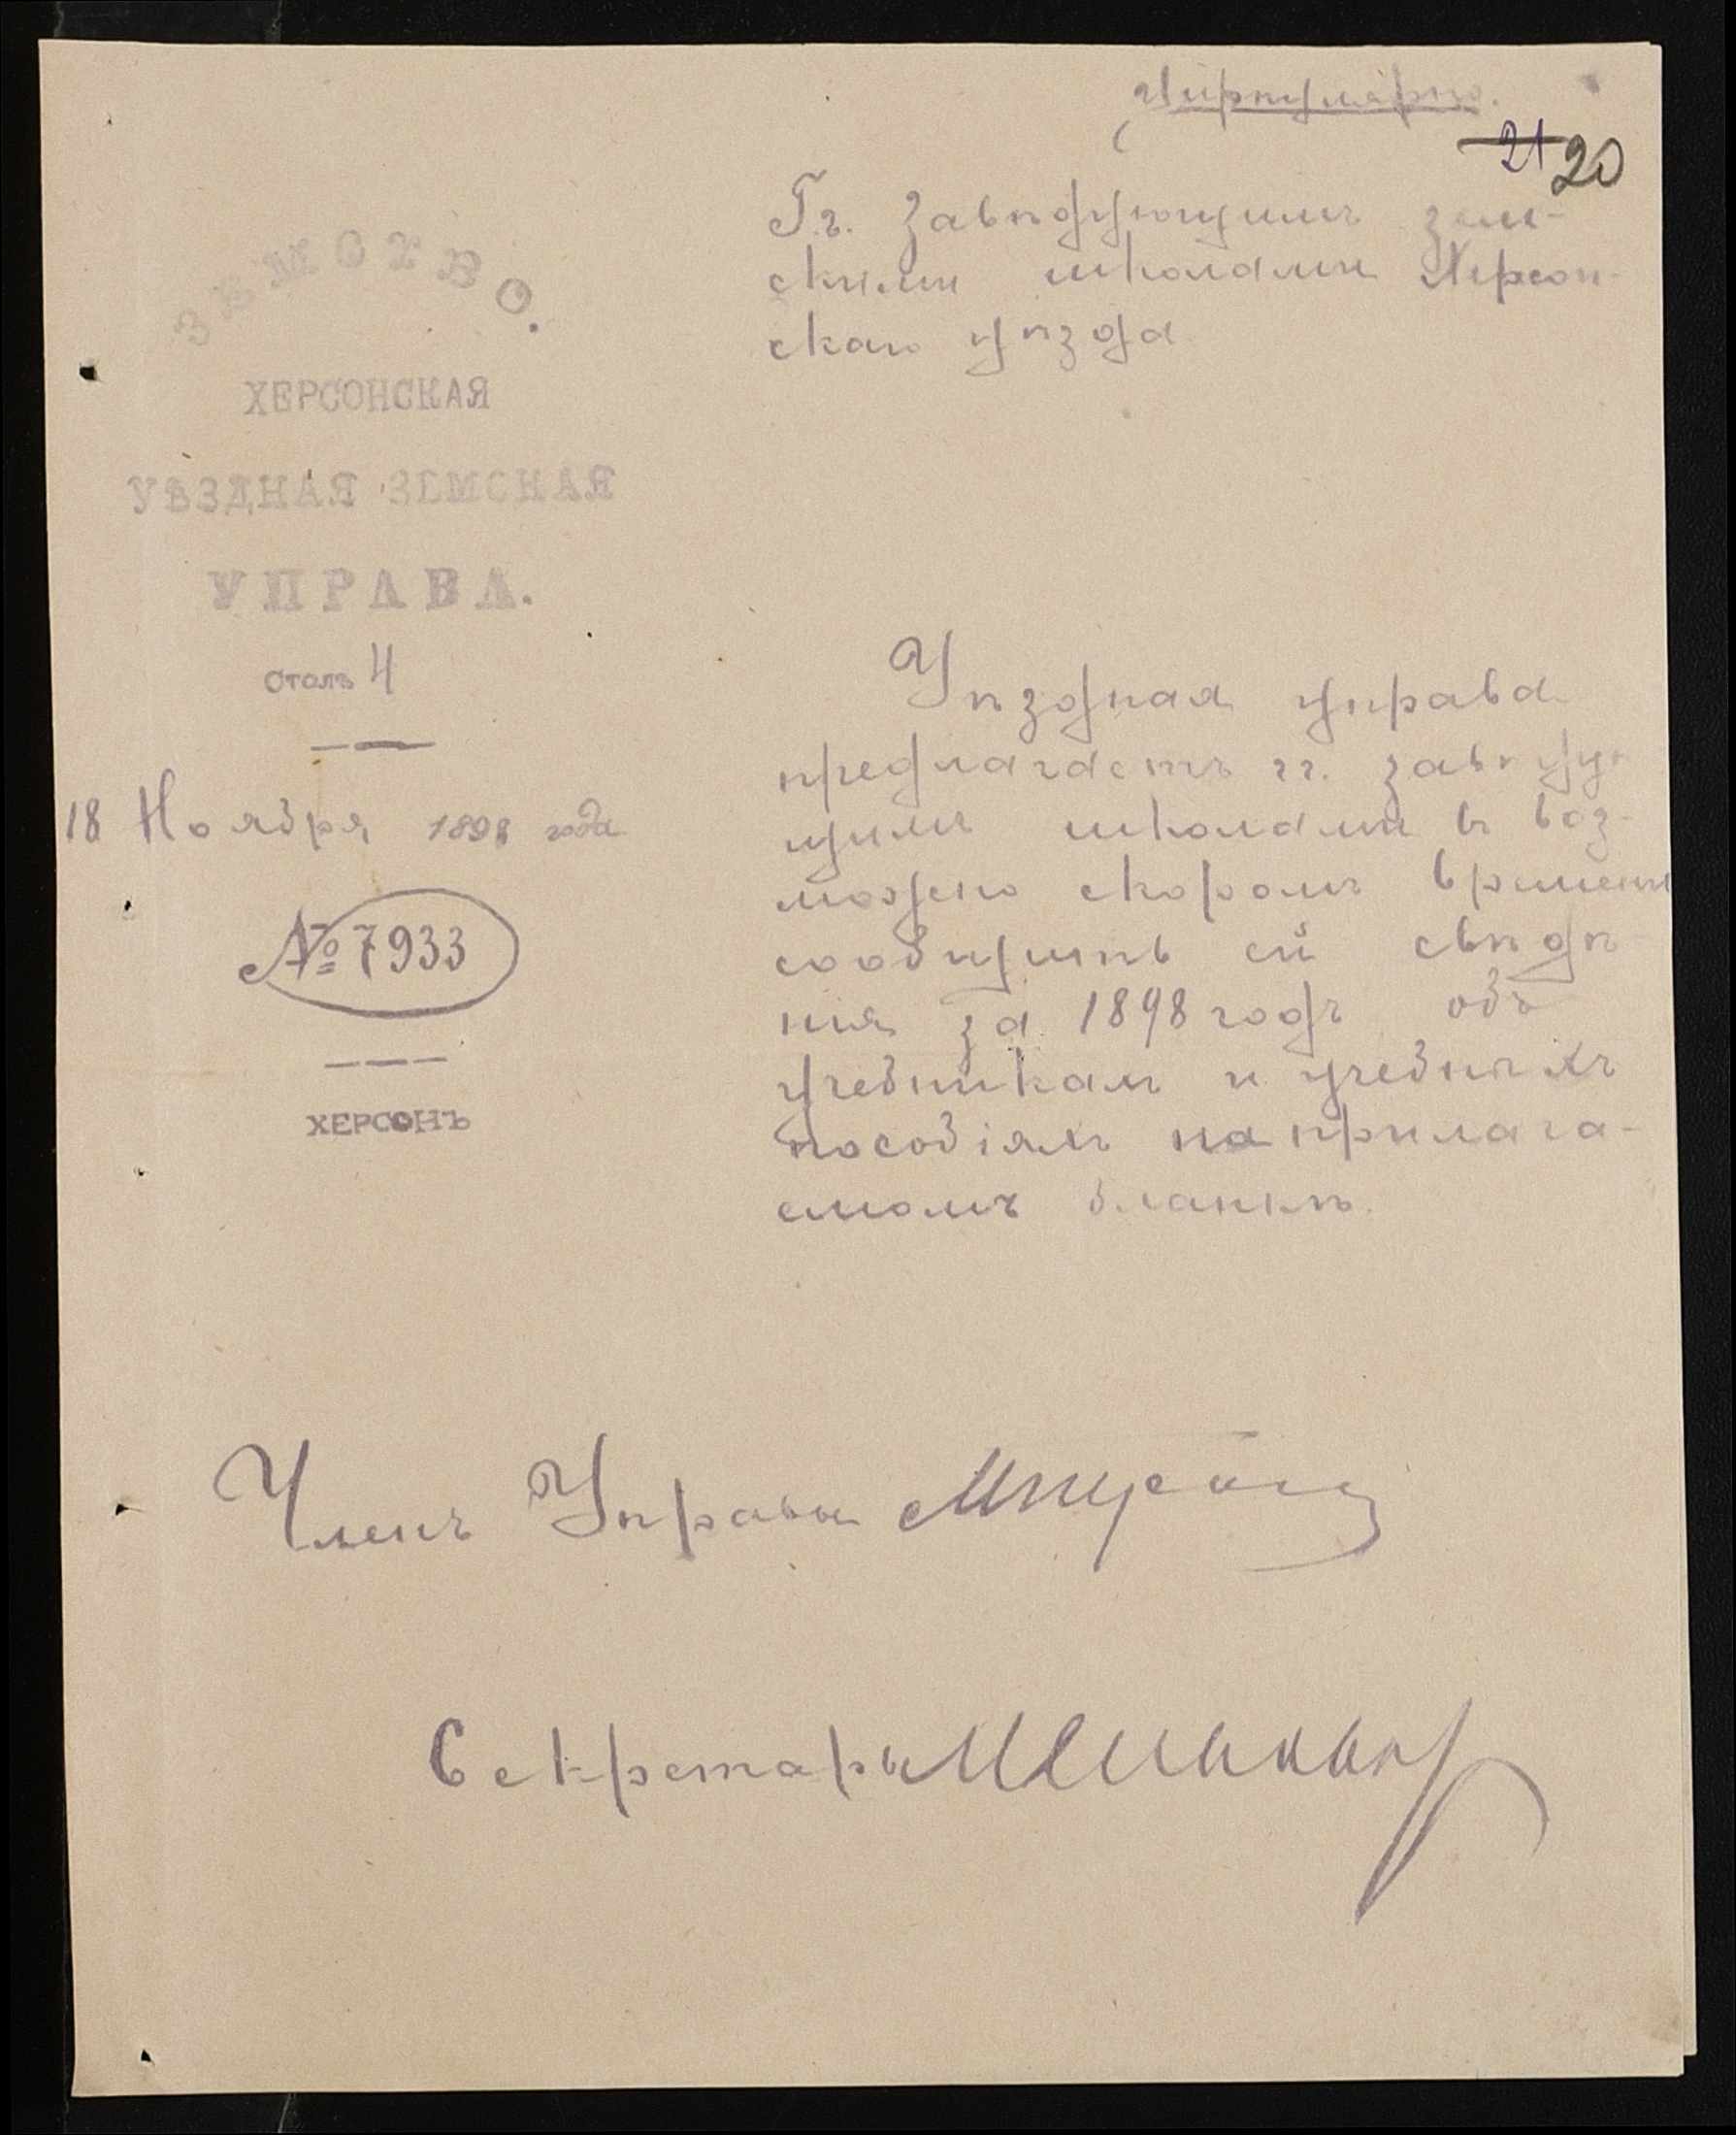 Циркулярно.
21 20
Гг. Завѣдующимъ зем-
скими школами Херсон-
скаго уѣзда
ЗЕМСТВО.
ХЕРСОНСКАЯ
УѢЗДНАЯ ЗЕМСКАЯ
УПРАВА.
Столъ 4
18 Ноября 1898 года
№ 7933
ХЕРСОНЪ
Уѣздная управа
предлагаетъ гг. завѣдую
щимъ школами въ воз-
можно скоромъ времени
сообщить ей свѣдѣ-
нія за 1898 годъ объ
учебникахъ и учебныхъ
пособіяхъ на прилага-
емомъ бланкѣ.
Членъ Управы
Секретарь